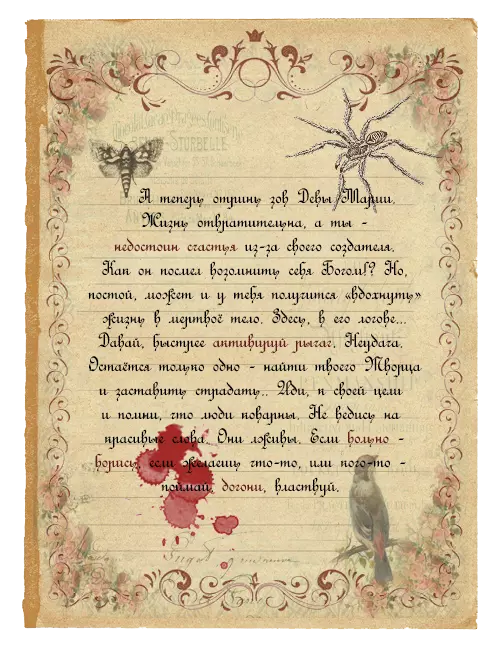 А теперь отринь зов Девы Марии.
Жизнь отвратительна, а ты -
недостоин счастья из-за своего создателя.
Как он посмел возомнить себя Богом!? Но,
постой, может и у тебя получится «вдохнуть»
жизнь в мертвоё тело. Здесь, в его логове...
Давай, быстрее активируй рычаг. Неудача.
Остаётся только одно - найти твоего Творца
и заставить страдать.. Иди, к своей цели
и помни, что люди коварны. Не ведись на
красивые слова. Они лживы. Если больно -
борись, если желаешь что-то, или кого-то -
поймай, догони, властвуй.
STORBELLE